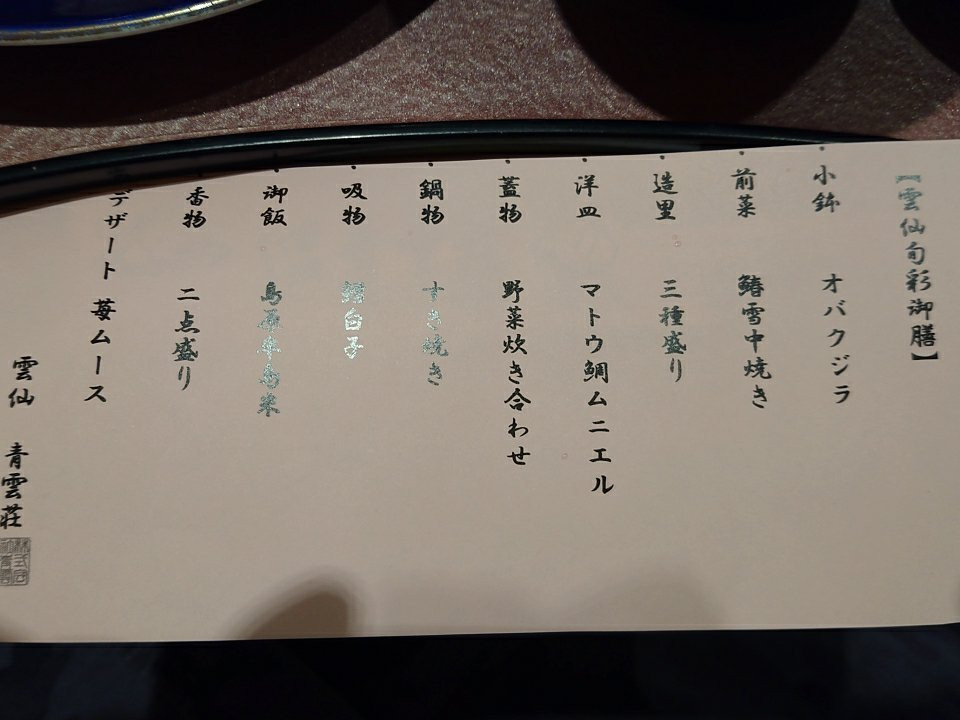 【雲仙旬彩御膳】
・小鉢　オバクジラ
・前菜　鰆雪中焼き
・造里　三種盛り
・洋皿　マトウ鯛ムニエル
・蓋物　野菜炊き合わせ
・鍋物　すき焼き
・吸物
・御飯　島原半島米
・香物　二点盛り
デザート　苺ムース
雲仙　青雲荘